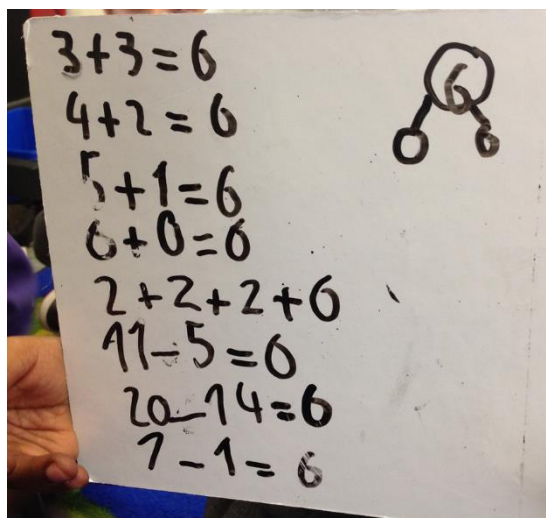 3+3=6
4+2=6
5+1=6
6+0=6
2+2+2+6
11-5=6
20-14=6
7-1=6
6
0 6